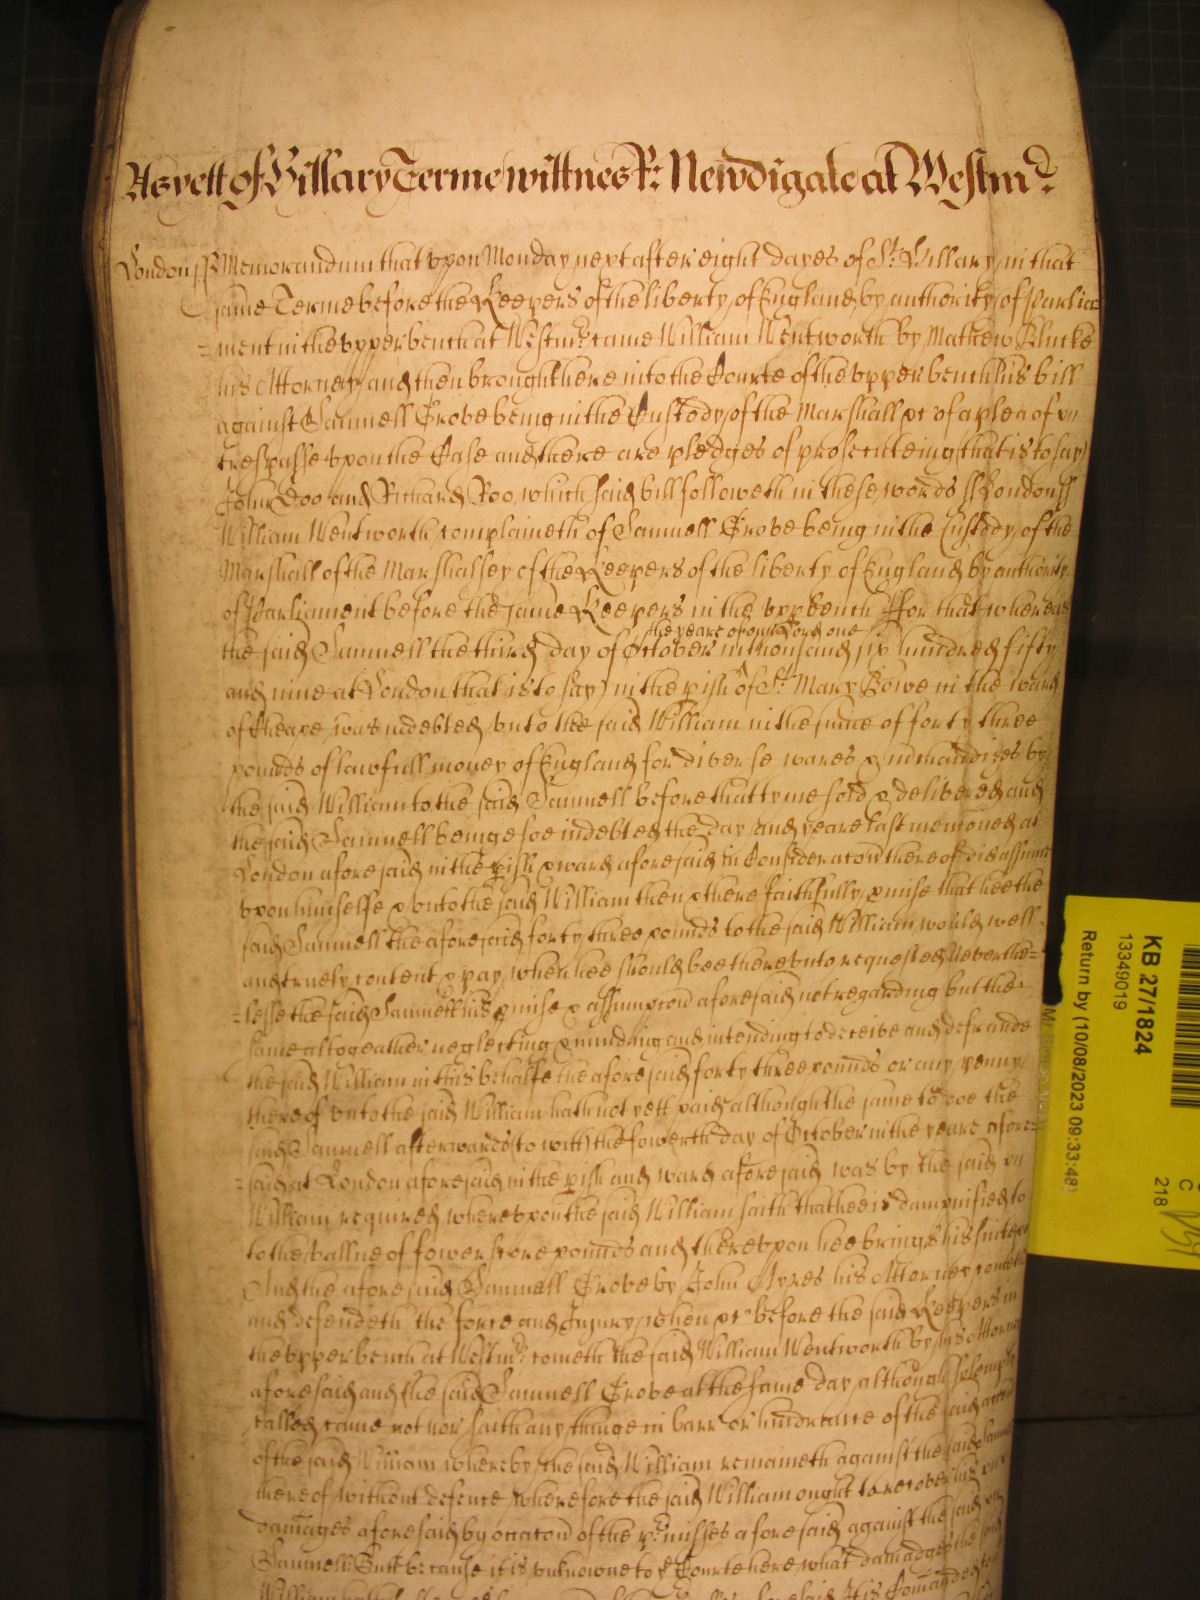 As yett of Hillary Terme wittnes R: Newdigate at Westmr.
London ss Memorandum that vpon Monday next after eight dayes of St. Hillary in that
same Terme before the Keepers of the liberty of England by authority of Parlia=
=ment in the vpper bench at Westmr. came William Wentworth by Mathew Blucke
his Attorney and then brought here into the Courte of the vpper bench his bill
against Samuell Grove being in the Custody of the Marshall &c of a plea of
trespasse vpon the Case and there are pledges of prosecuteing that is to say
John Doo and Richard Roo, which said bill followeth in these words ss London ss
William Wentworth complaineth of Samuell Grove being in the Custody of the
Marshall of the Marshalsey of the Keepers of the liberty of England by authority
of Parliament before the same Keepers in the vpp bench ffor that whereas
the yeare of our Lord one
the said Samuell the third day of October in thousand six hundred fifty
and nine at London that is to say in the pish of St. Mary Bowe in the ward
of Cheape was indebted vnto the said William in the sume of forty three
pounds of lawfull money of England for diverse wares & merchandizes by
the said William to the said Samuell before that tyme sold & delivered and
the said Samuell being soe indebted the day and yeare last menconed at
London aforesaid in the pish & ward aforesaid in Consideracon thereof did assume
vpon himselfe & vnto the said William then & there faithfully pmise that hee the
said Samuell the aforesaid forty three pounds to the said William would well
and truely content & pay when hee should bee therevnto requested Neverthe=
=lesse the said Samuell his pmise & assumpcon aforesaid not regarding but the
same altogeather neglecting & minding and intending to deceive and defraude
the said William in this behalfe the aforesaid forty three pounds or any penny
thereof vnto the said William hath not yett paid although the same to doe the
said Samuell afterwards (to witt) the fowerth day of October in the yeare afore=
=said at London aforesaid in the pish and ward aforesaid was by the said
William required wherevpon the said William saith that hee is dampnified to
to the vallue of fower score pounds and therevpon hee brings his suite &c
And the aforesaid Samuell Grove by John Ayres his Attorney cometh
and defendeth the force and Injury when &c before the said Keepers in
the vpper bench at Westmr. cometh the said William Wentworth by his Attorney
aforesaid and the said Samuell Grove at the same day although solempnly
called came not nor saith any thinge in barr or hindrance of the said accon
of the said William whereby the said William remaineth against the said Samuell
thereof without defence wherefore the said William ought to recover his
damages aforesaid by occacon of the pmisses aforesaid against the said
Samuell: Butt because it is vnknowne to ye Courte here what damadges the said
William hath
KB 27/1824
13349019
Return by (10/08/2023 09:33:48)
C
218